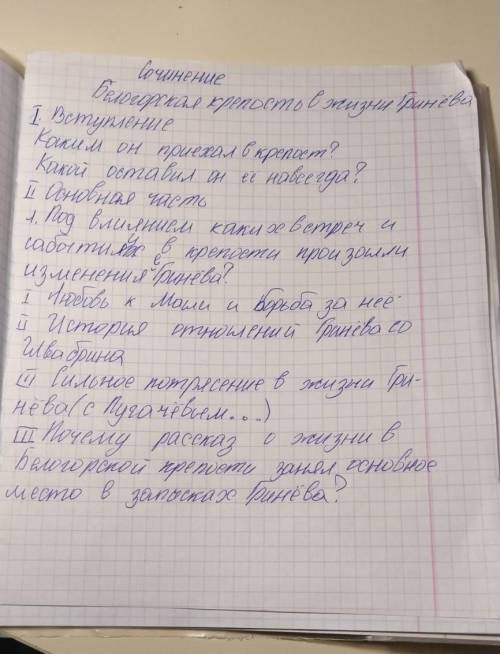 Сочинение
Белогорская крепость в жизни Гринёва
I Вступление
Каким он приехал в крепост?
Какой оставил он её навсегда?
II Основная часть
1. Под влиянием каких встреч и
в крепости произошли
изменения с Гринёва?
I Любовь к Маши и борьба за неё
II История отношений Гринёва со
Швабрина
III Сильное потрясение в жизни Гри-
нёва (с Пугачёвием...)
III Почему рассказ о жизни в
Белогорской крепости занял основное
место в запысках Гринёва?